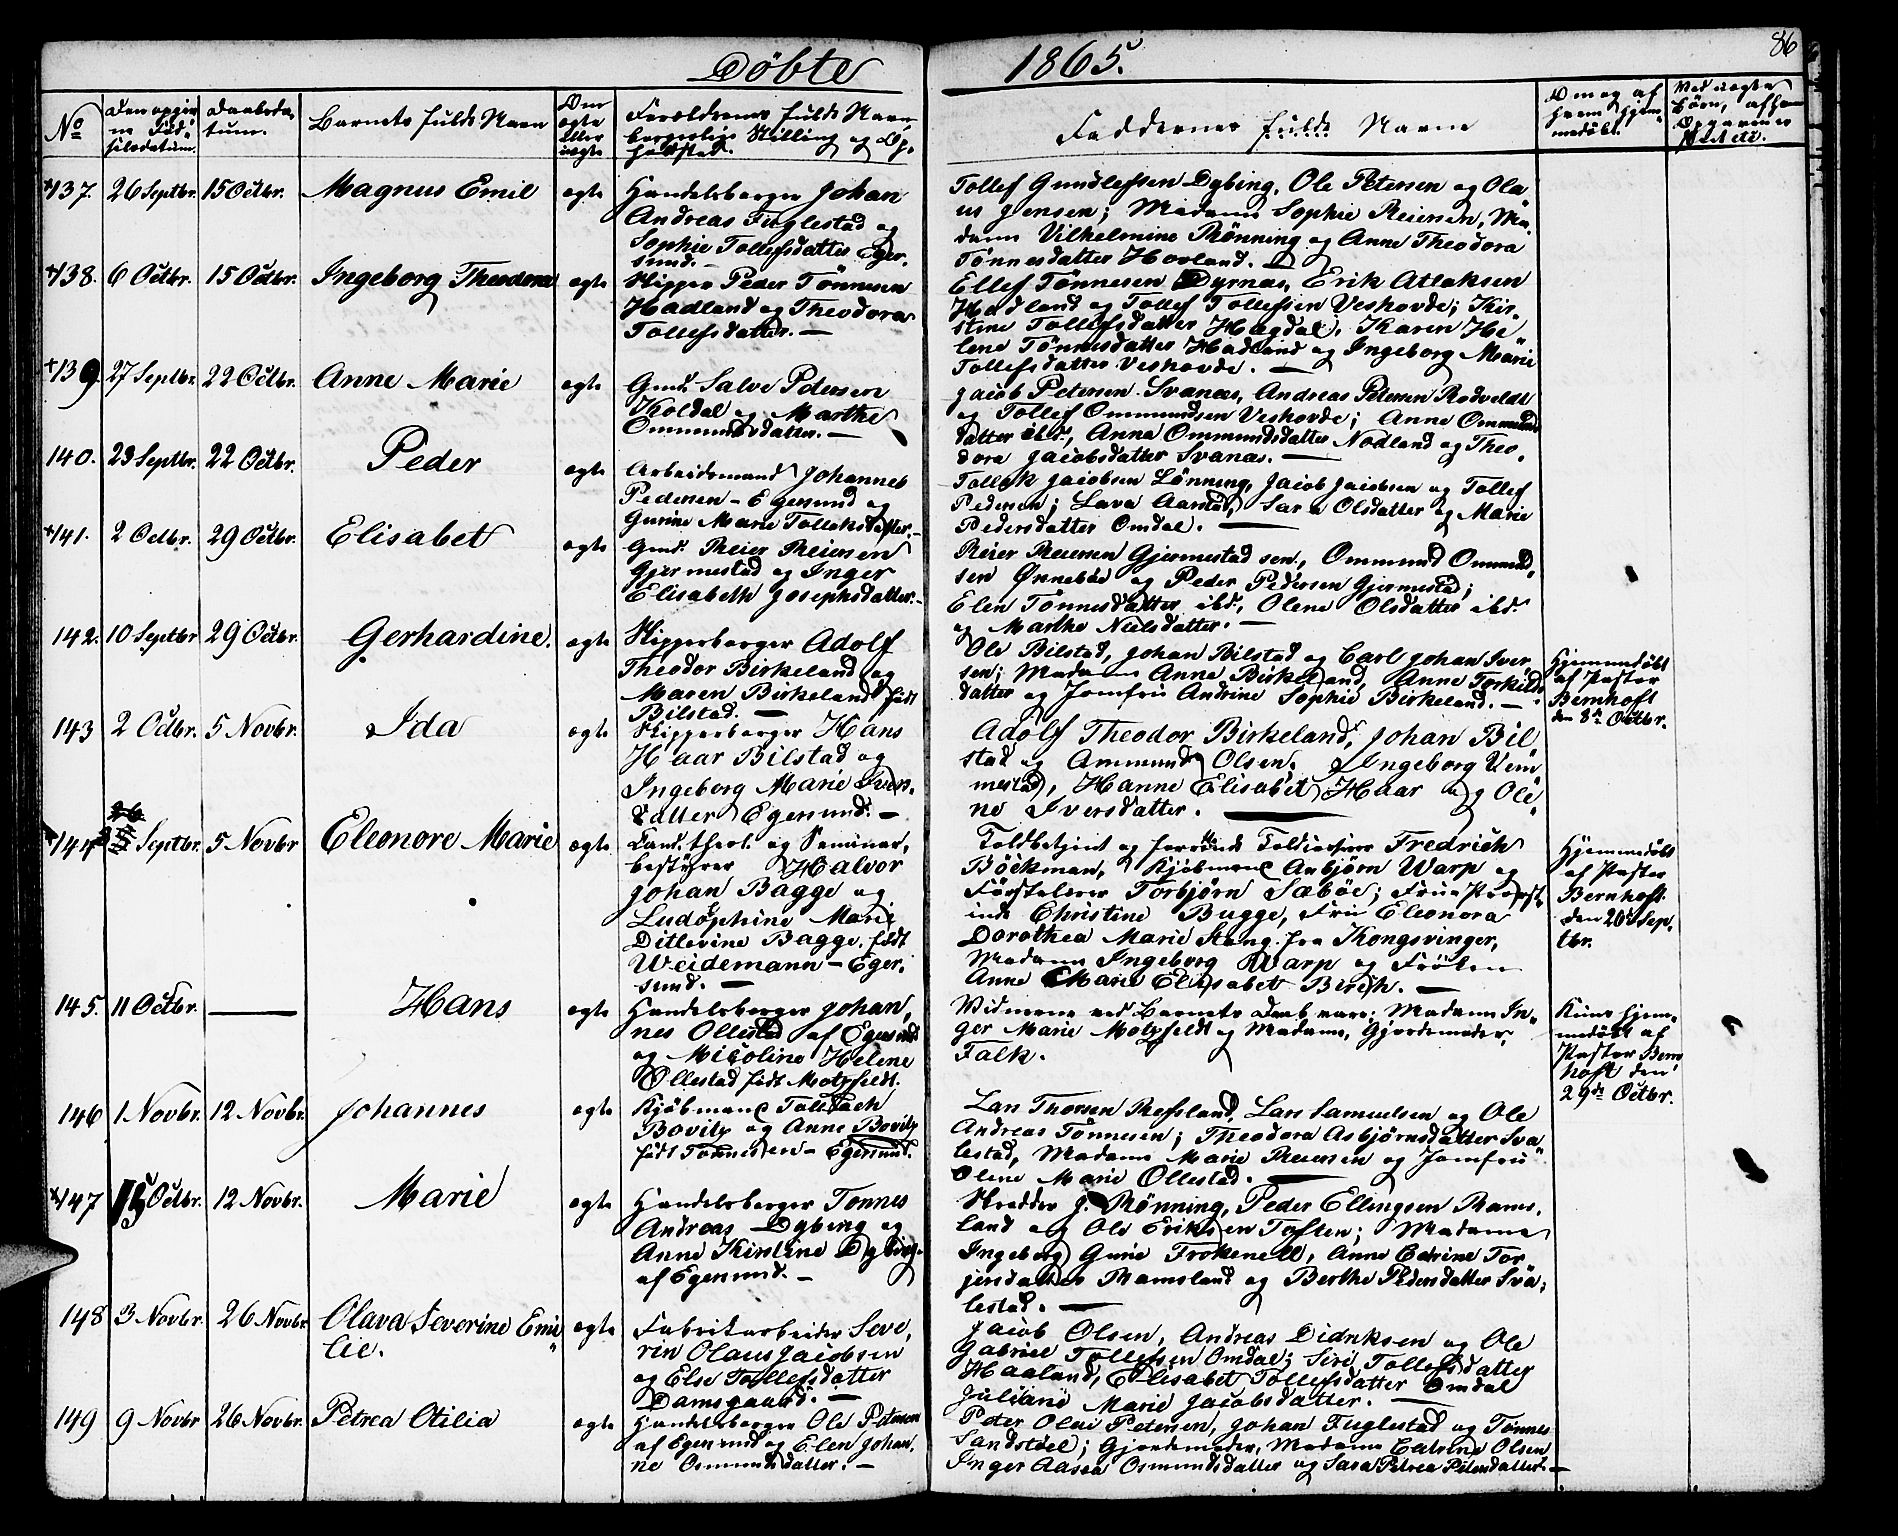 Döbte 1865.
86
No
Den opgivne Fødselsdatum.
Daabsdatum.
Barnets fulde Navn
Om ægte eller uægte
Forældrenes fulde Navn, borgerlige Stilling og Opholdsted.
Faddernes fulde Navne
Om og af hvem hjemmedøbt.
137. 26 Septbr. 15 Octbr. Magnus Emil ægte
Handelsborger Johan
Andreas Fuglestad og
Sophie Tollefsdatter Eger-
sund. —
Tollef Gundlefsen Dybing, Ole Petersen og Ola
us Jensen; Madame Sophie Reiersen, Ma-
dame Vilhelmine Rønning og Anne Theodora
Tönnesdatter Hovland. —
138. 6 Octbr. 15 Octbr. Ingeborg Theodora ægte
Skipper Peder Tönnesen
Hadland og Theodora
Tollefsdatter. —
Ellef Tönnesen Dyrnæs, Erik Atlaksen
Hadland og Tollef Tollefsen Veshovde; Kir-
stine Tollefsdatter Hægdal, Karen He
lene Tönnesdatter Hadland og Ingeborg Marie
Tollefsdatter Veshovde. —
139. 27 Septbr. 22 Octbr. Anne Marie ægte
Gmd. Salve Petersen
Koldal og Marthe
Ommundsdatter. —
Jacob Petersen Svanæs, Andreas Petersen Rodveldt
og Tollef Ommundsen Veshovde; Anne Ommund
datter ibd., Anna Ommundsdatter Nodland og Theo-
dora Jacobsdatter Svanæs. —
140. 23 Septbr. 22 Octbr. Peder ægte
Arbeidsmand Johannes
Pedersen - Egersund og
Gurine Marie Tollaksdatter. —
Tollak Jacobsen Lönning, Jacob Jacobsen og Tollef
Pedersen; Lava Aarstad, Sara Olsdatter og Marie
Pedersdatter Omdal. —
141. 2 Octbr. 29 Octbr. Elisabet ægte
Gmd. Reier Reiersen
Gjermestad og Inger
Elisabeth Josephsdatter. —
Reier Reiersen Gjermestad sen., Ommund Ommund-
sen Ønnebøe og Peder Pedersen Gjermestad;
Elen Tönnesdatter ibd., Olene Olsdatter ibd.
og Marthe Nielsdatter. —
142. 10 Septbr 29 Octbr. Gerhardine. ægte
Skipperborger Adolf
Theodor Birkeland og
Maren Birkeland født
Bilstad. —
Ole Bilstad, Johan Bilstad og Carl Johan Iver
sen; Madame Anne Birkeland, Anne Torkilds-
datter og Jomfru Andrine Sophie Birkeland. —
Hjemmedøbt
af Pastor
Bernhoft
den 8de Octbr.
143 2 Octbr. 5 Novbr. Ida ægte
Skipperborger Hans
Haar Bilstad og
Ingeborg Marie Ivers-
datter Egersund. —
Adolf Theodor Birkeland, Johan Bil
stad og Ammund Olsen; Ingeborg Vem
mestad, Hanne Elisabet Haar og Oli-
ne Iversdatter. —
144 Septbr. 5 Novbr Eleonore Marie ægte
Cand. theol. og Seminar-
bestyrer Halvor
Johan Bagge og
Ludophine Marie
Ditlevine Bagge, født
Weidemann - Eger-
sund. —
Toldbetjent og forrende Toldcasserer Fredrich
Böckman, Kjøbmand Asbjørn Warp og
Førstelærer Torbjørn Sæbøe; Frue Provst-
inde Christine Bugge, Frue Eleonora
Dorothea Marie Stang fra Kongsvinger,
Madame Ingeborg Warp og Frøken
Anne Marie Elisabet Birch. —
Hjemmedøbt
af Pastor
Bernhoft
den 20de Sep-
tbr.
145. 11 Octbr. — Hans ægte
Handelsborger Johan-
nes Ollestad af Egersund
og Micoline Helene
Ollestad født Motzfeldt.
Vidnerne ved Barnets Daab vare: Madame In-
ger Marie Motzfeldt og Madame, Gjordemoder,
Falk.
Kun hjem-
medøbt af
Pastor Bern
hoft den
29de Octbr.
146 1 Novbr. 12 Novbr. Johannes ægte
Kjøbmand Tollach
Bovitz og Anne Bovitz
født Tönnesen - Egersund.
Lars Thorsen Refsland, Lars Samuelsen og Ole
Andreas Tönnesen; Theodora Asbjørnsdatter Sva
lestad, Madame Marie Reiersen og Jomfru
Oline Marie Ollestad. —
147 15 Octbr. 12 Novbr. Marie ægte
Handelsborger Tonnes
Andreas Dybing og
Anne Kirstine Dybing
af Egersund. —
Skredder J. Rønning, Peder Ellingsen Rams-
land og Ole Eriksen Toften; Madame
Ingeborg Gurie Frokenell, Anne Catrine Tor
jersdatter Ramsland og Berthe Pedersdatter Sva-
lestad. —
148 3 Novbr. 26 Novbr. Olava Severine Emi
lie. ægte
Fabrikarbeider Seve-
rin Olaus Jacobsen
og Else Tollefsdatter
Damsgaard. —
Jacob Olsen, Andreas Didriksen og Ole
Gabriel Tollefsen Omdal; Siri Tollefsdatter
Haaland, Elisabet Tollefsdatter Omdal
Juliane Marie Jacobsdatter. —
149 9 Novbr 26 Novbr. Petrea Otilia ægte
Handelsborger Ole Petersen
af Egersund og Elen Johan-
ne Osmundsdatter. —
Peter Olai Petersen, Johan Fuglestad og Tønnes
Sandstöel; Gjordemoder, Madame Catrine Olsen
Inger Aasea Osmundsdatter og Sara Petrea Petersdatter. —